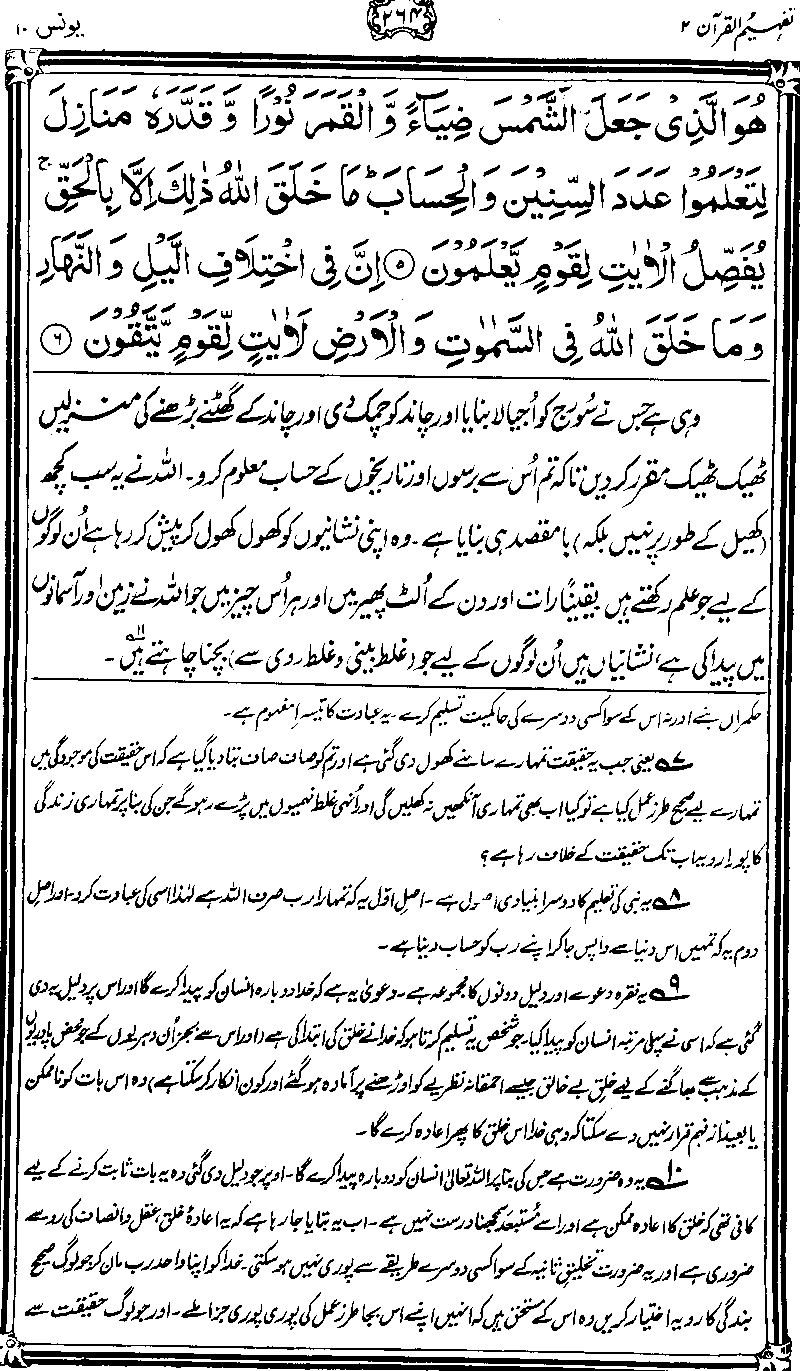 تفہیم القرآن ۲
۲۶۴
یونس ۱۰
هُوَ الَّذِیْ جَعَلَ الشَّمْسَ ضِیَآءً وَّ الْقَمَرَ نُوْرًا وَّ قَدَّرَهٗ مَنَازِلَ
لِتَعْلَمُوْا عَدَدَ السِّنِیْنَ وَ الْحِسَابَ ؕ مَا خَلَقَ اللّٰهُ ذٰلِكَ اِلَّا بِالْحَقِّ ۚ
یُفَصِّلُ الْاٰیٰتِ لِقَوْمٍ یَّعْلَمُوْنَ ﴿۵﴾ اِنَّ فِی اخْتِلَافِ الَّیْلِ وَ النَّهَارِ
وَ مَا خَلَقَ اللّٰهُ فِی السَّمٰوٰتِ وَ الْاَرْضِ لَاٰیٰتٍ لِّقَوْمٍ یَّتَّقُوْنَ ﴿۶﴾
وہی ہے جس نے سُورج کو اُجیالا بنایا اور چاند کو چمک دی اور چاند کے گھٹنے بڑھنے کی منزلیں
ٹھیک ٹھیک مقرر کر دیں تاکہ تم اُس سے برسوں اور تاریخوں کے حساب معلوم کرو۔ اللہ نے یہ سب کچھ
(کھیل کے طور پر نہیں بلکہ) با مقصد ہی بنایا ہے۔ وہ اپنی نشانیوں کو کھول کھول کر پیش کر رہا ہے اُن لوگوں
کے لیے جو علم رکھتے ہیں۔ یقیناً رات اور دن کے اُلٹ پھیر میں اور ہر اُس چیز میں جو اللہ نے زمین اور آسمانوں
میں پیدا کی ہے، نشانیاں ہیں اُن لوگوں کے لیے جو (غلط بینی و غلط روی سے) بچنا چاہتے ہیں ۱۱؎۔
حکمراں بنے اور نہ اس کے سوا کسی دوسرے کی حاکمیت تسلیم کرے۔ یہ عبادت کا تیسرا مفہوم ہے۔
۷؎ یعنی جب یہ حقیقت تمہارے سامنے کھول دی گئی ہے اور تم کو صاف صاف بتا دیا گیا ہے کہ اس حقیقت کی موجودگی میں
تمہارے لیے صحیح طرزِ عمل کیا ہے تو کیا اب بھی تمہاری آنکھیں نہ کھلیں گی اور اُنہی غلط فہمیوں میں پڑے رہو گے جن کی بنا پر تمہاری زندگی
کا پورا رویہ اب تک حقیقت کے خلاف رہا ہے؟
۸؎ یہ نبی کی تعلیم کا دوسرا بنیادی اصول ہے۔ اصلِ اوّل یہ کہ تمہارا رب صرف اللہ ہے لہٰذا اسی کی عبادت کرو۔ اور اصلِ
دوم یہ کہ تمہیں اس دنیا سے واپس جا کر اپنے رب کو حساب دینا ہے۔
۹؎ یہ فقرہ دعوے اور دلیل دونوں کا مجموعہ ہے۔ دعویٰ یہ ہے کہ خدا دوبارہ انسان کو پیدا کرے گا اور اس پر دلیل یہ دی
گئی ہے کہ اسی نے پہلی مرتبہ انسان کو پیدا کیا۔ جو شخص یہ تسلیم کرتا ہو کہ خدا نے خلق کی ابتدا کی ہے (اور اس سے بجز اُن دہریوں کے جو محض پادریوں
کے مذہب سے بھاگنے کے لیے خلقِ بے خالق جیسے احمقانہ نظریے کو اوڑھنے پر آمادہ ہو گئے اور کون انکار کر سکتا ہے) وہ اس بات کو ناممکن
یا بعید از فہم قرار نہیں دے سکتا کہ وہی خدا اس خلق کا پھر اعادہ کرے گا۔
۱۰؎ یہ وہ ضرورت ہے جس کی بنا پر اللہ تعالیٰ انسان کو دوبارہ پیدا کرے گا۔ اوپر جو دلیل دی گئی وہ یہ بات ثابت کرنے کے لیے
کافی تھی کہ خلق کا اعادہ ممکن ہے اور اسے مُستبعد سمجھنا درست نہیں ہے۔ اب یہ بتایا جا رہا ہے کہ یہ اعادۂ خلق، عقل و انصاف کی رو سے
ضروری ہے اور یہ ضرورت تخلیقِ ثانیہ کے سوا کسی دوسرے طریقے سے پوری نہیں ہو سکتی۔ خدا کو اپنا واحد رب مان کر جو لوگ صحیح
بندگی کا رویہ اختیار کریں وہ اس کے مستحق ہیں کہ انہیں اپنے اس بجا طرزِ عمل کی پوری پوری جزا ملے۔ اور جو لوگ حقیقت سے